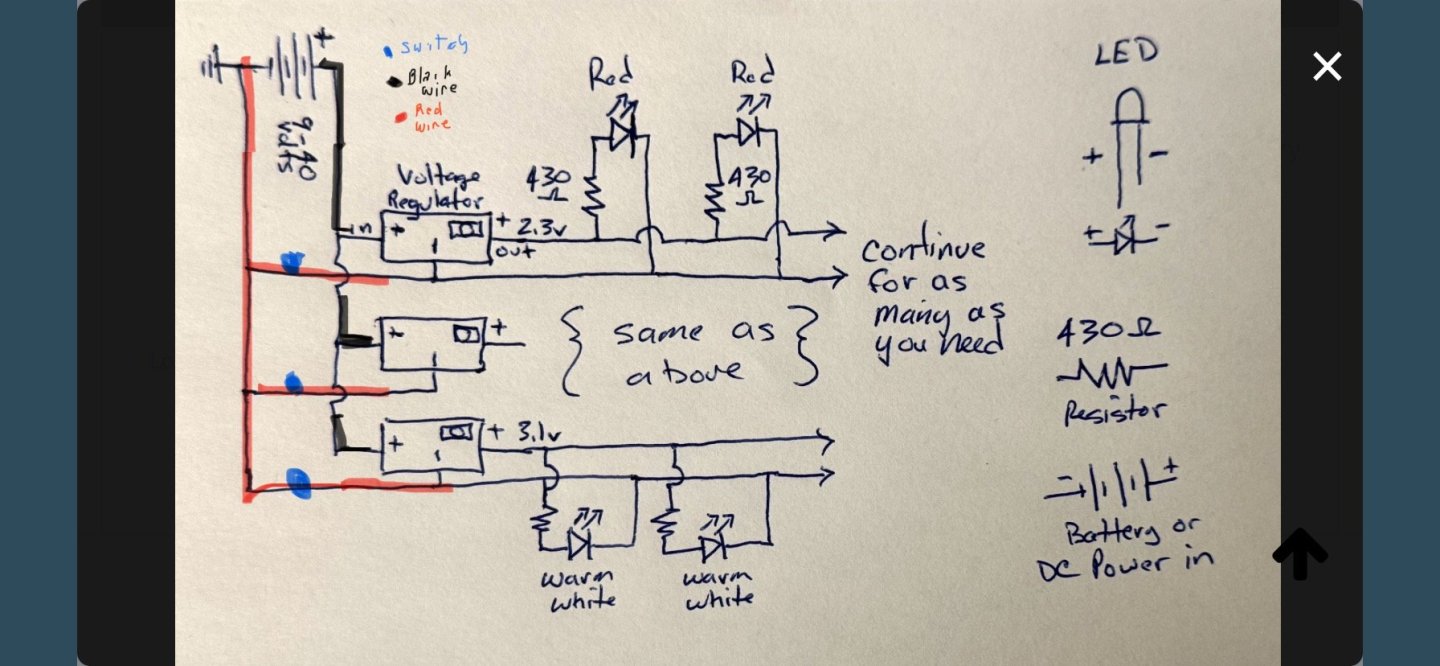 +
switch
Black
wire
Red
wire
9-40
volts
Red
Red
LED
+ -
+ -
Voltage
Regulator
430
Ω
430
Ω
in
+
-
+ 2.3v
out
continue
for as
many as
you need
+
-
+
{ same as
above }
430Ω
Resistor
+
-
+ 3.1v
warm
white
warm
white
- +
Battery or
DC Power in